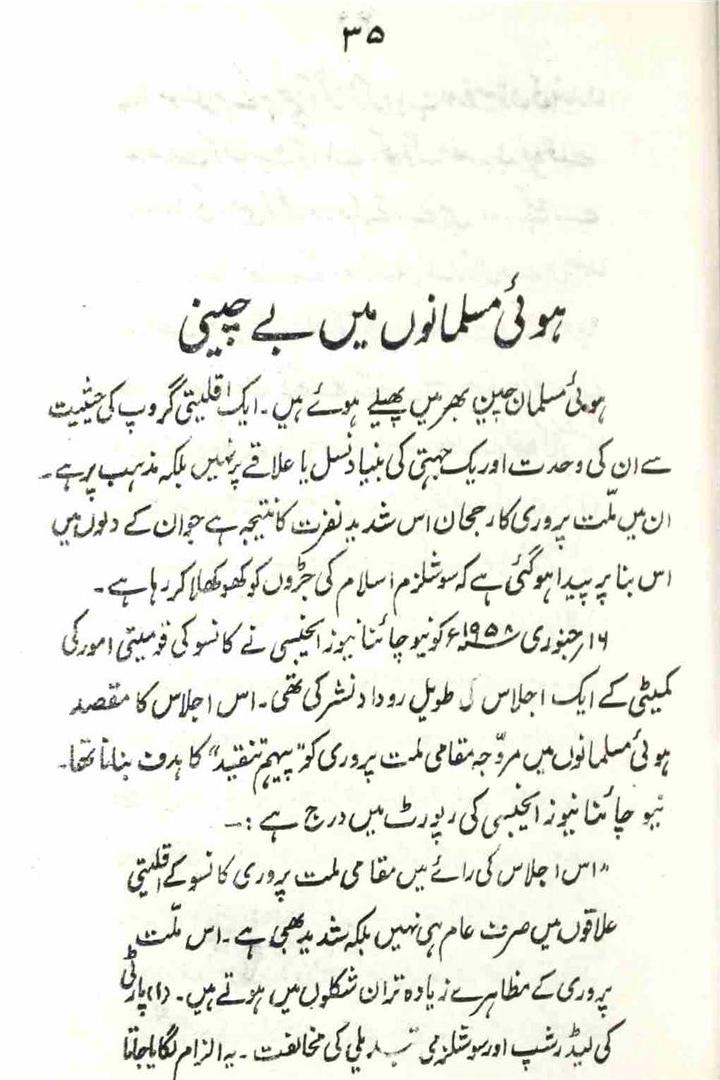 ۳۵
ہوئی مسلمانوں میں بے چینی
ہوئی مسلمان چین بھر میں پھیلے ہوئے ہیں۔ ایک اقلیتی گروپ کی حیثیت
سے ان کی وحدت اور یک جہتی کی بنیاد نسل یا علاقے پر نہیں بلکہ مذہب پر ہے۔
ان میں ملّت پروری کا رجحان اس شدید نفرت کا نتیجہ ہے جو ان کے دلوں میں
اس بنا پر پیدا ہو گئی ہے کہ سوشلزم اسلام کی جڑوں کو کھوکھلا کر رہا ہے۔
۱۶ر جنوری ۱۹۵۸ء کو نیو چائنا نیوز ایجنسی نے کانسو کی قومیتی امور کی
کمیٹی کے ایک اجلاس کی طویل روداد نشر کی تھی۔ اس اجلاس کا مقصد
ہوئی مسلمانوں میں مروّجہ مقامی ملت پروری کو "پیہم تنقید" کا ہدف بنانا تھا۔
نیو چائنا نیوز ایجنسی کی رپورٹ میں درج ہے :۔
"اس اجلاس کی رائے میں مقامی ملت پروری کانسو کے اقلیتی
علاقوں میں صرف عام ہی نہیں بلکہ شدید بھی ہے۔ اس ملّت
پروری کے مظاہرے زیادہ تر ان شکلوں میں ہوتے ہیں۔ (۱) پارٹی
کی لیڈر شپ اور سوشلزمی تبدیلی کی مخالفت۔ یہ الزام لگایا جاتا